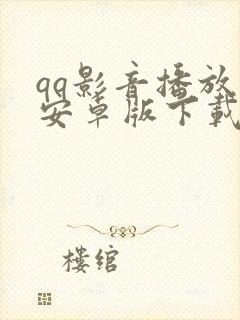 qq影音播放
安卓版下载
楼绾